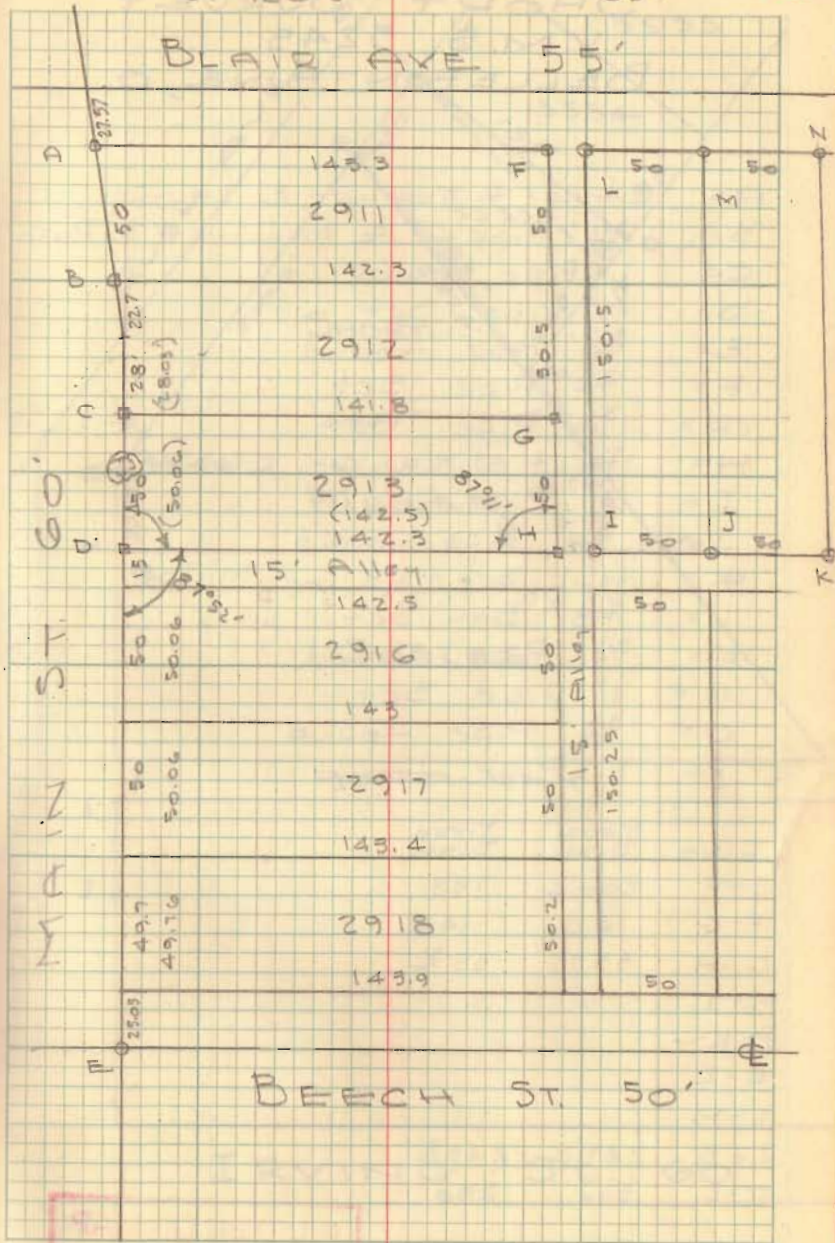 BLAIR AVE 55'
27.57
D
143.3
F
L
50
M
50
N
50
2911
50
B
142.3
22.7
28'
(28.03)
2912
50.5
150.5
C
141.8
G
50
(50.06)
2913
(142.5)
142.3
87°11'
50
H
I
50
J
50
K
15
15' Alley
87°52'
142.5
50
50
50.06
2916
50
143
15' Alley
150.25
50
50.06
2917
50
143.4
49.7
49.76
2918
50.2
143.9
50
MAIN ST. 60'
25.03
E
BEECH ST. 50'